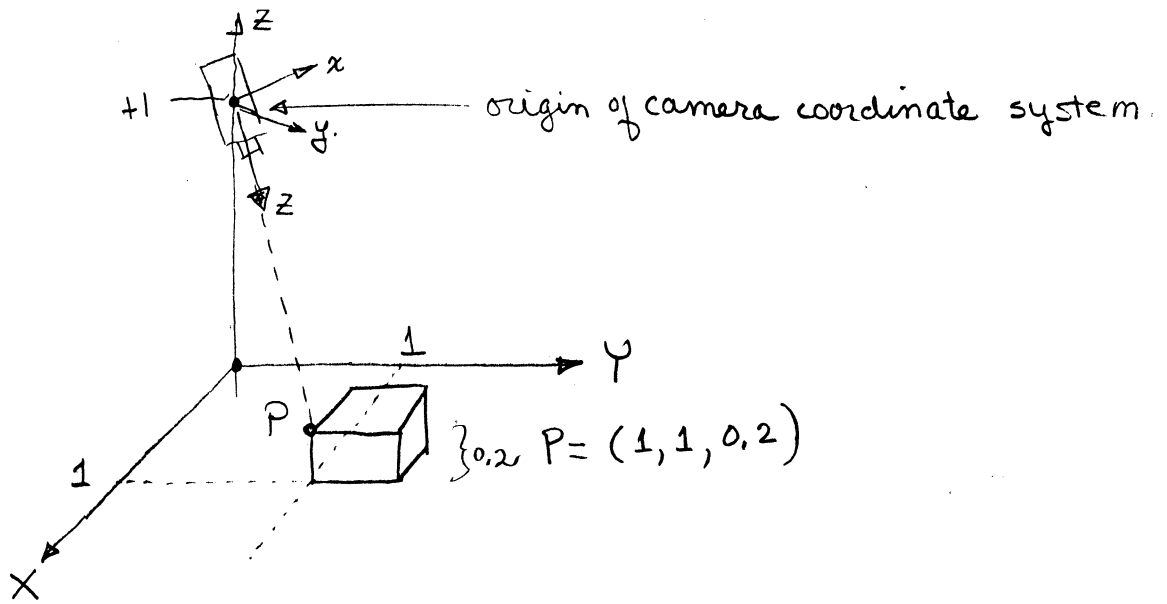 Z
x
+1
origin of camera coordinate system.
y.
z
1
Y
P
}0.2
P = (1, 1, 0.2)
1
X